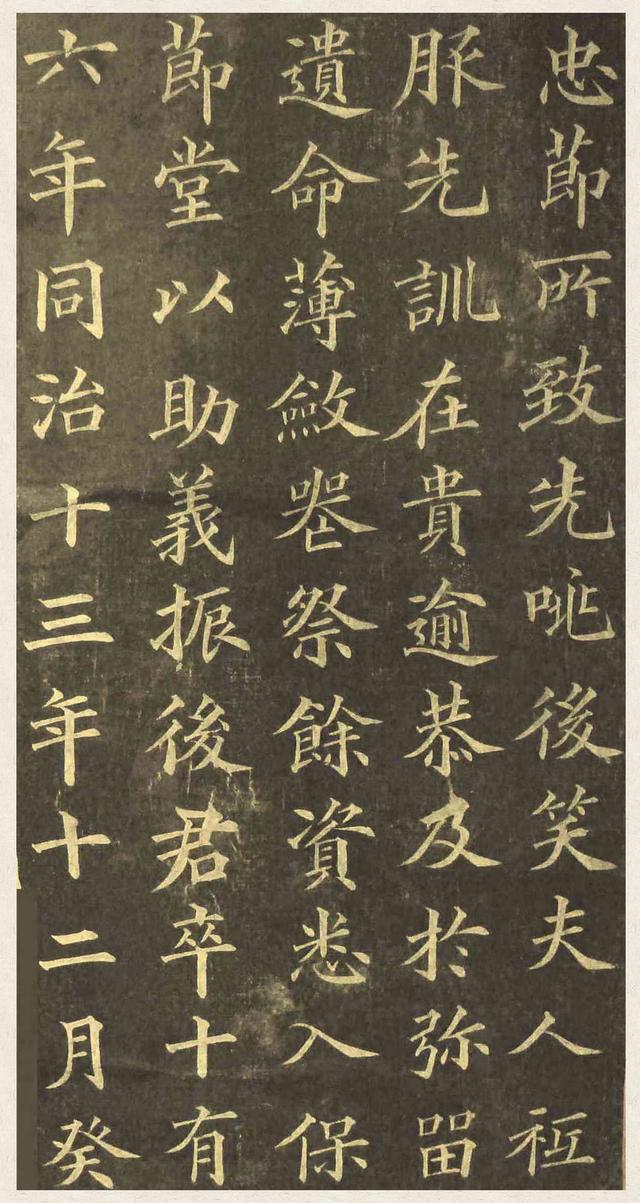 忠莭所致先咷後笑夫人祗
服先訓在貴逾恭及於弥畱
遺命薄斂喪祭餘資悉入保
莭堂以助義振後君卒十有
六年同治十三年十二月癸